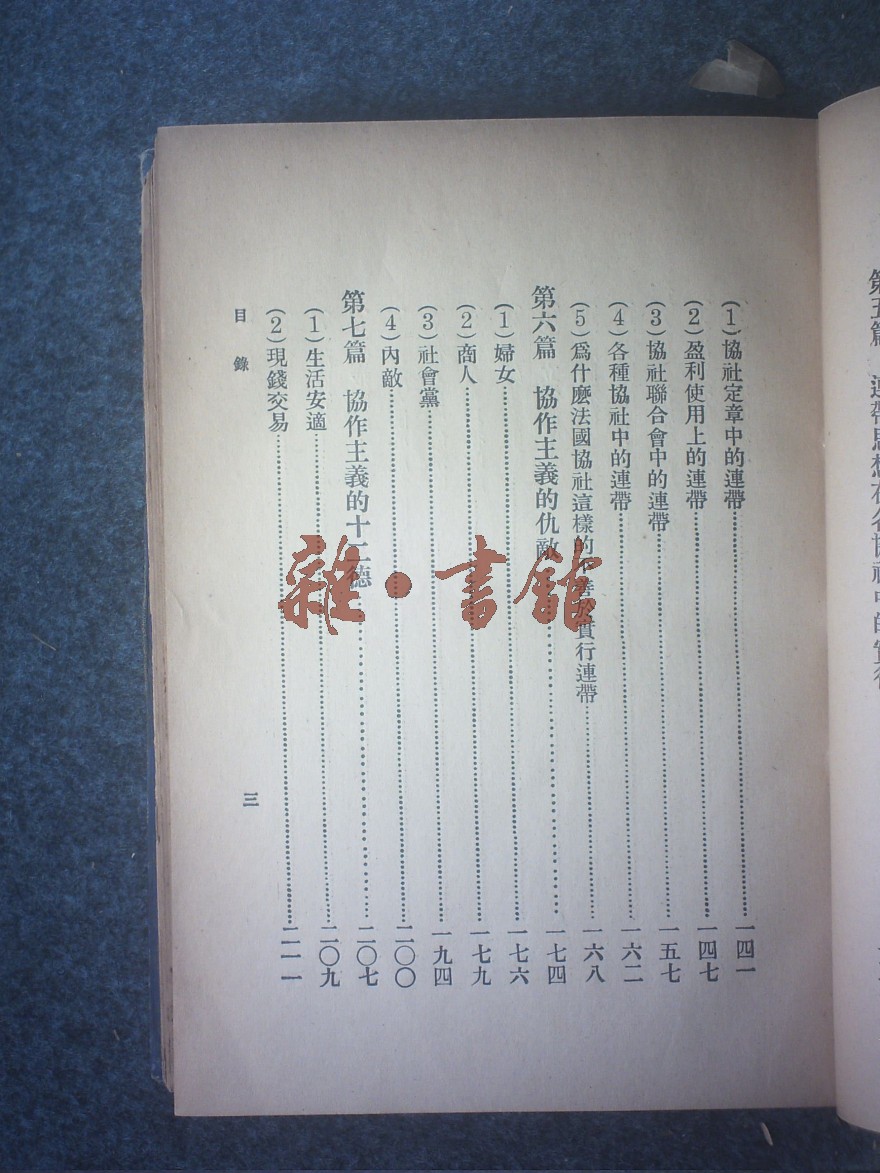 第五篇 連帶思想在各協社中的實行
(1)協社定章中的連帶……一四一
(2)盈利使用上的連帶……一四七
(3)協社聯合會中的連帶……一五七
(4)各種協社中的連帶……一六二
(5)爲什麼法國協社這樣的不善於實行連帶……一六八
第六篇 協作主義的仇敵……一七四
(1)婦女……一七六
(2)商人……一七九
(3)社會黨……一九四
(4)內敵……二〇〇
第七篇 協作主義的十二德……二〇七
(1)生活安適……二〇九
(2)現錢交易……二一一
目錄
三
雜·書館